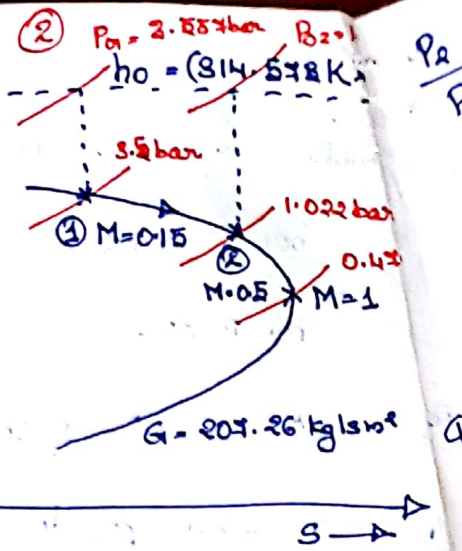 ②
P01 = 3.557bar
P02=
P2
h0 = (314.578K
3.5bar
① M=0.15
1.022bar
②
0.47
M=0.5
M=1
G = 207.26 kg/sm²
S